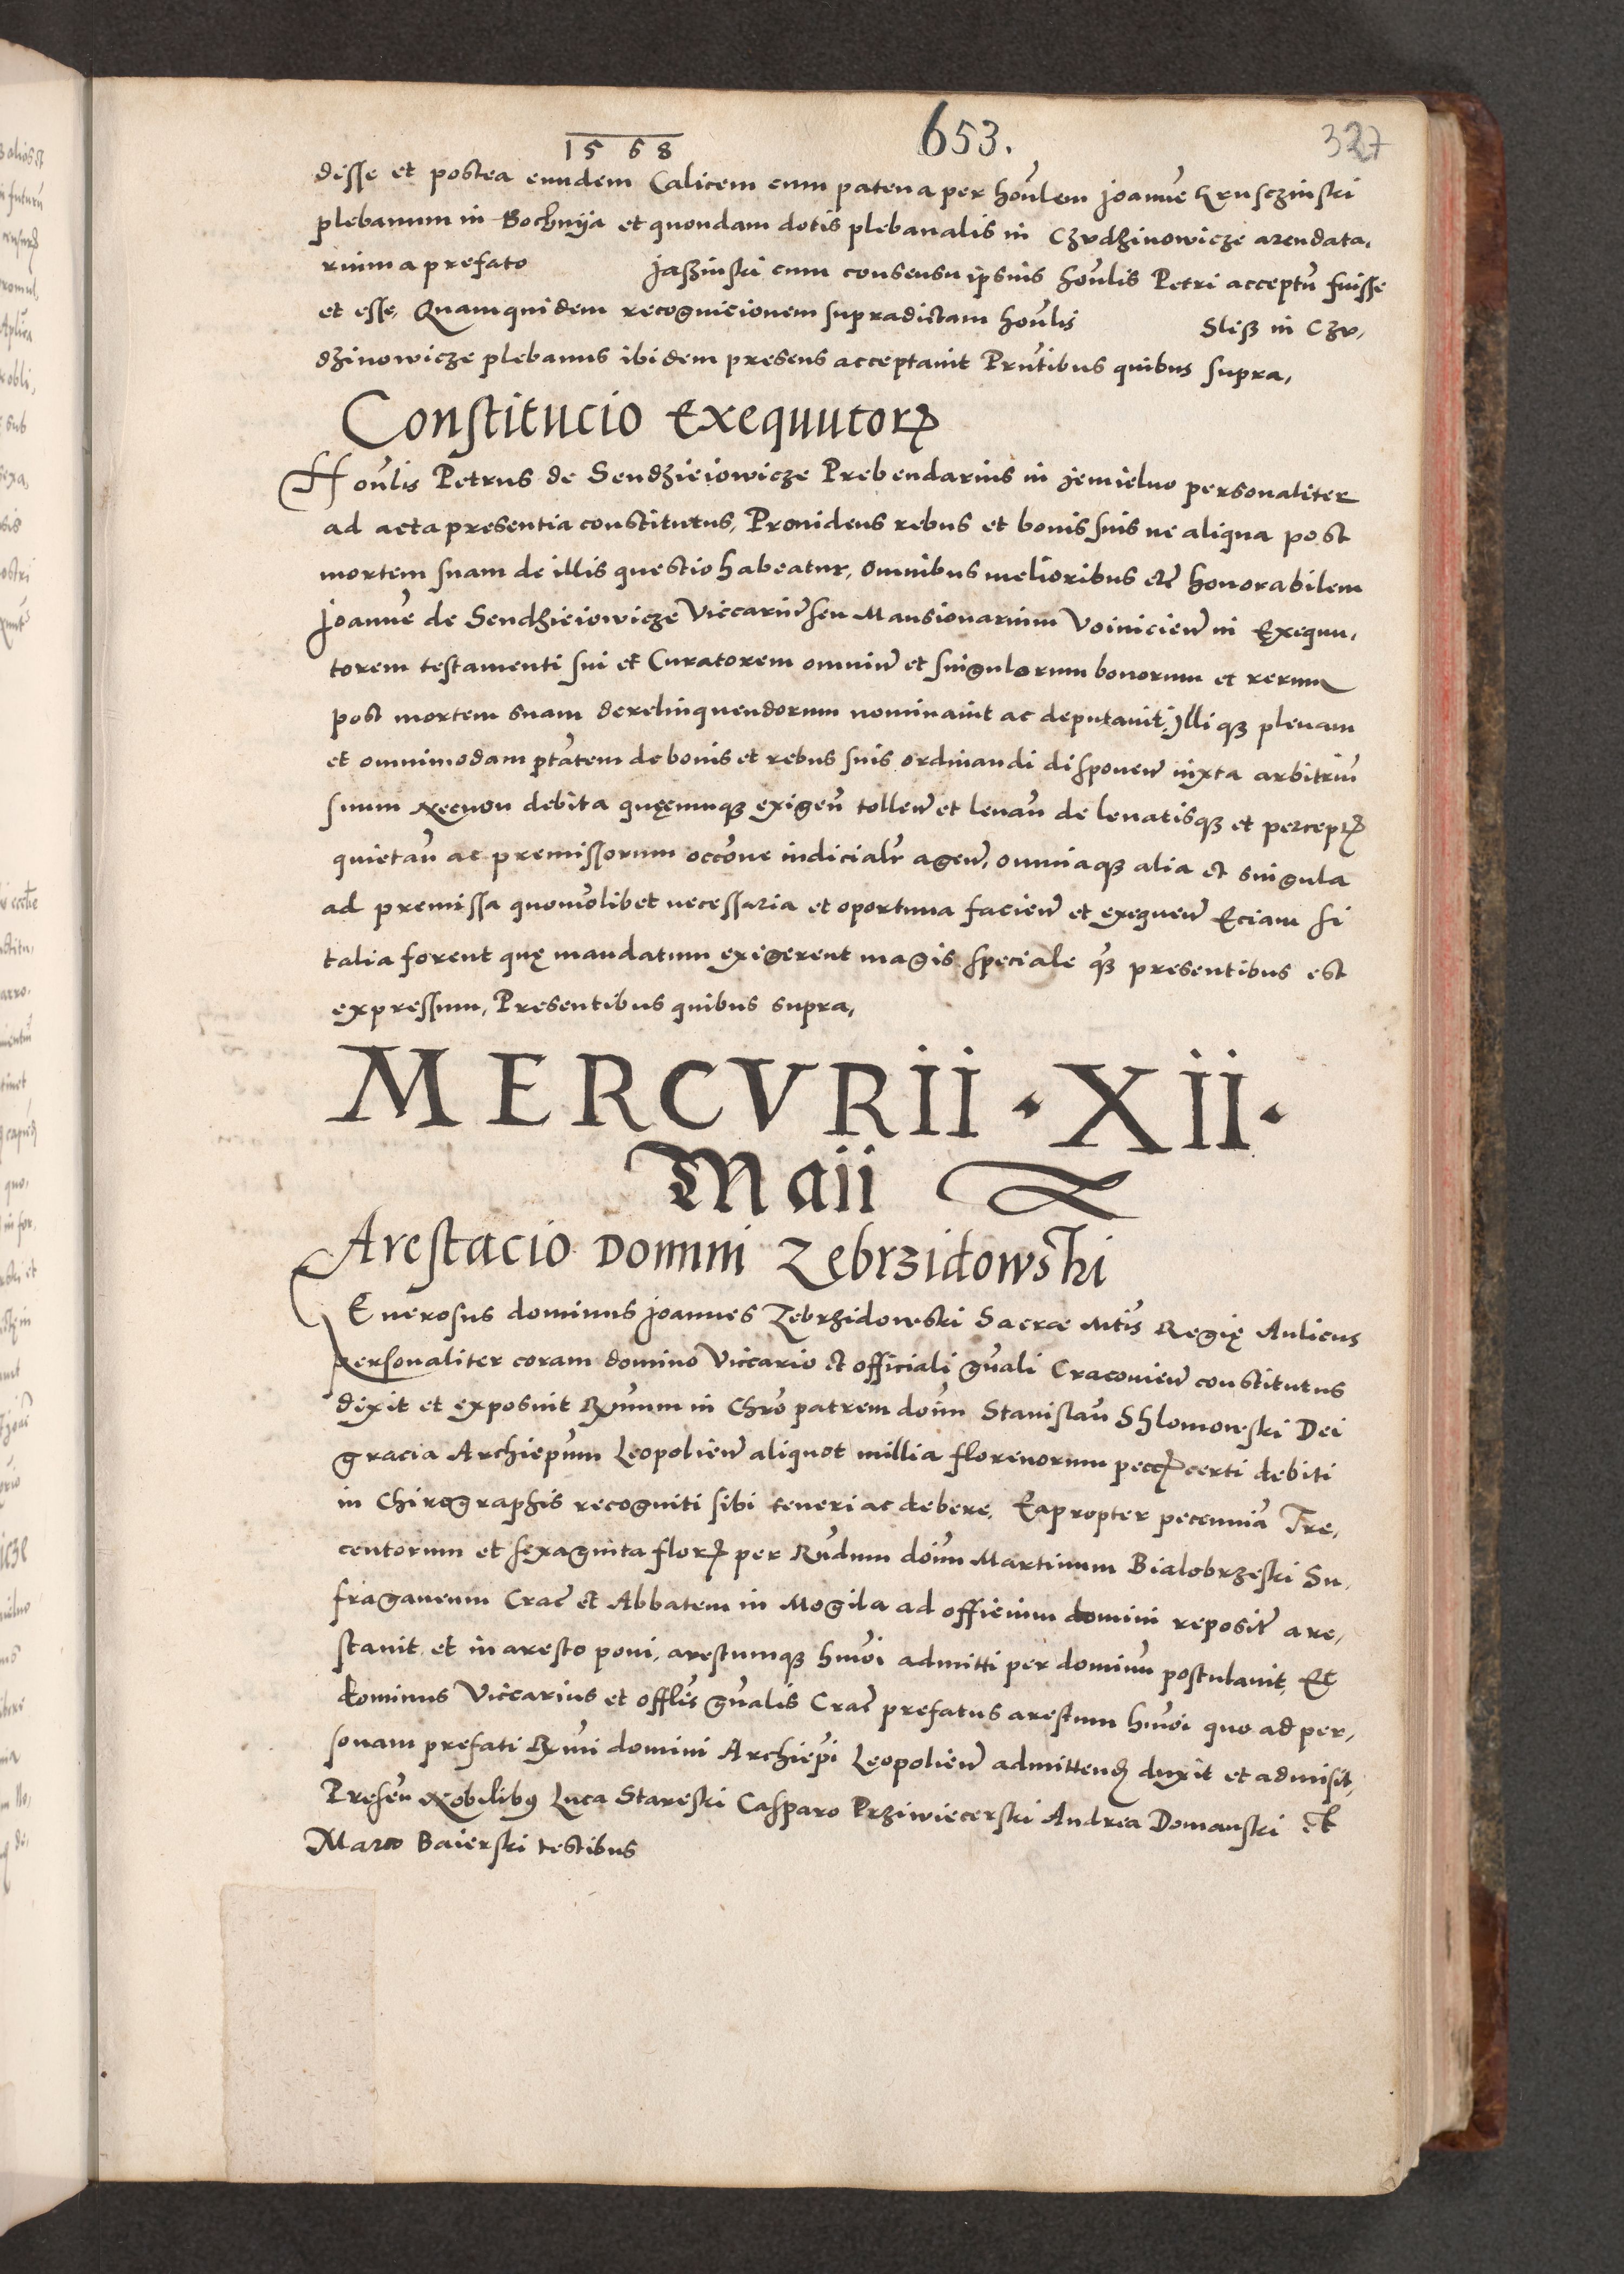 1568 653. 327
disse et postea eundem Calicem cum patena per hon̄lem Joannē Krusczinski
plebanum in Bochnija et quondam dotis plebanalis in Czudzinowicze arendata,
rium a prefato Jaßinski cum consensu ipsius hon̄lis Petri acceptū fuisse
et esse, Quamquidem recognicionem supradictam hon̄lis Sliß in Czu,
dzinowicze plebanus ibidem presens acceptauit Prn̄tibus quibus supra,
Constitucio Exequutorꝝ
Hon̄lis Petrus de Sendzieiowicze Prebendarius in jemielno personaliter
ad acta presentia constitutus, Prouidens rebus et bonis suis ne aliqua post
mortem suam de illis questio habeatur, omnibus melioribus etc̄ honorabilem
Joannē de Sendzieiowicze Viccariū seu Mansionarium Voinicien̄ in Exequu,
torem testamenti sui et Curatorem omniū et singulorum bonorum et rerum
post mortem suam derelinquendorum nominauit ac deputauit, Illiqꝫ plenam
et omnimodam ptātem de bonis et rebus suis ordinandi disponen̄ iuxta arbitriū
suum Necnon debita quęcunqꝫ exigen̄ tollen̄ et leuan̄ de leuatisqꝫ et perceptꝭ
quietan̄ ac premissorum occōne iudicialr̄ agen̄, omniaqꝫ alia et singula
ad premissa quomōlibet necessaria et oportuna facien̄ et exequen̄ Eciam si
talia forent quę mandatum exigerent magis speciale qꝫ̄ presentibus est
expressum, Presentibus quibus supra,
MERCVRII · XII ·
Maii
Arestacio Domini Zebrzidowski
Generosus dominus Joannes Zebrzidowski Sacræ Mtīs Regię Aulicus
personaliter coram domino Viccario et officiali gn̄ali Cracouien̄ constitutus
dixit et exposuit Rm̄um in Chrō patrem dom̄ Stanislau̅ Shlomowski Dei
gracia Archiepūm Leopolien̄ aliquot millia florenorum peccꝭ certi debiti
in Chirographis recogniti sibi teneri ac debere, Eapropter pecunniā Tre,
centorum et sexaginta florꝭ per Rn̄dum dom̄ Martinum Bialobrzeski Su,
fraganeum Crac̄ et Abbatem in Mogila ad officium domini reposit̄ are,
stauit, et in aresto poni, arestumqꝫ hmōi admitti per dominū postulauit, Et
dominus Viccarius et offlēs gn̄alis Crac̄ prefatus arestum hmōi quo ad per,
sonam prefati Rm̄i domini Archiepī Leopolien̄ admittendꝭ duxit et admisit,
Presen̄ Nobilibꝰ Luca Stareski Casparo Prziwiecerski Andrea Domanski et
Marco Baierski testibus